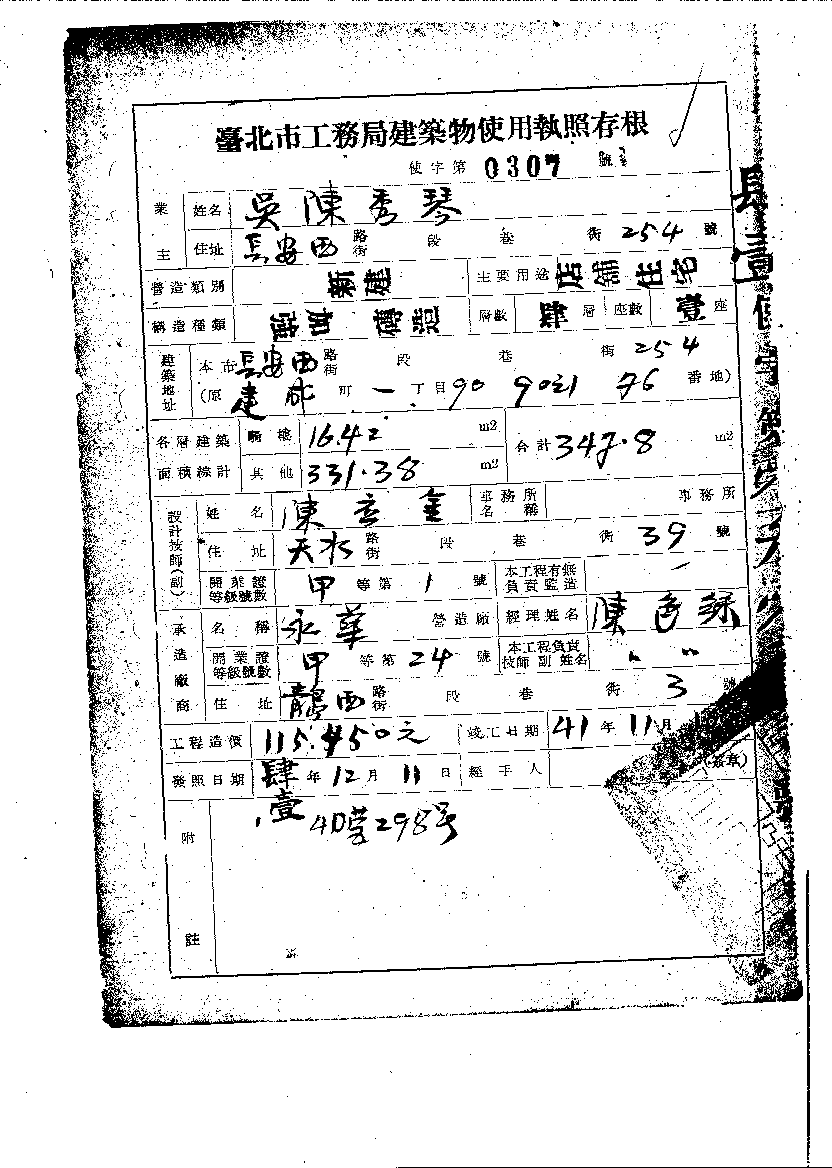 臺北市工務局建築物使用執照存根
使字第 0307 號
業主 姓名 吳陳秀琴
住址 長安西 路街 段 巷 街 254 號
營造類別 新建 主要用途 店舖住宅
構造種類 磚造 層數 肆 層 座數 壹 座
建築地址 本市 長安西 路街 段 巷 街 254
(原 建成 町 一 丁目 90 90之1 76 番地)
各層建築面積綜計 騎樓 16.42 m2 合計 347.8 m2
其他 331.38 m2
設計技師(副) 姓名 陳 金 事務所名稱 事務所
住址 天水 路街 段 巷 街 39 號
開業證等級號數 甲 等第 1 號 本工程有無負責監造
承造廠商 名稱 永華 營造廠 經理姓名 陳
開業證等級號數 甲 等第 24 號 本工程負責技師副姓名 〃 〃
住址 西 路街 段 巷 街 3 號
工程造價 115.450元 竣工日期 41 年 11 月
發照日期 肆壹 年 12 月 11 日 經手人 (簽章)
附註 40營298号